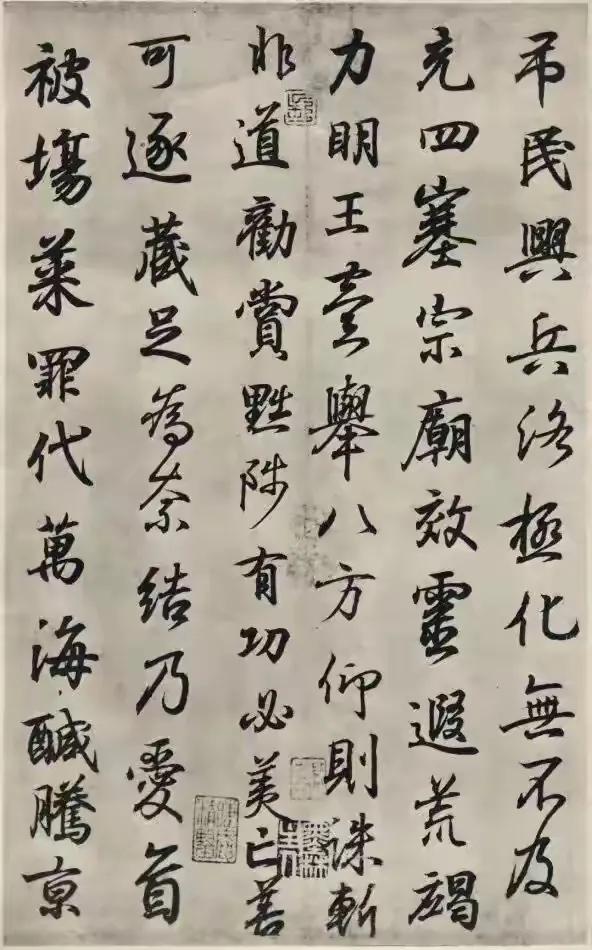 弔民興兵洛極化無不及
充四塞宗廟效靈遐荒竭
力明王舉八方仰則誅斬
非道勸賞黜陟有功必美亡善
可逐藏足為柰結乃愛育
被場菜罪代萬海鹹騰京